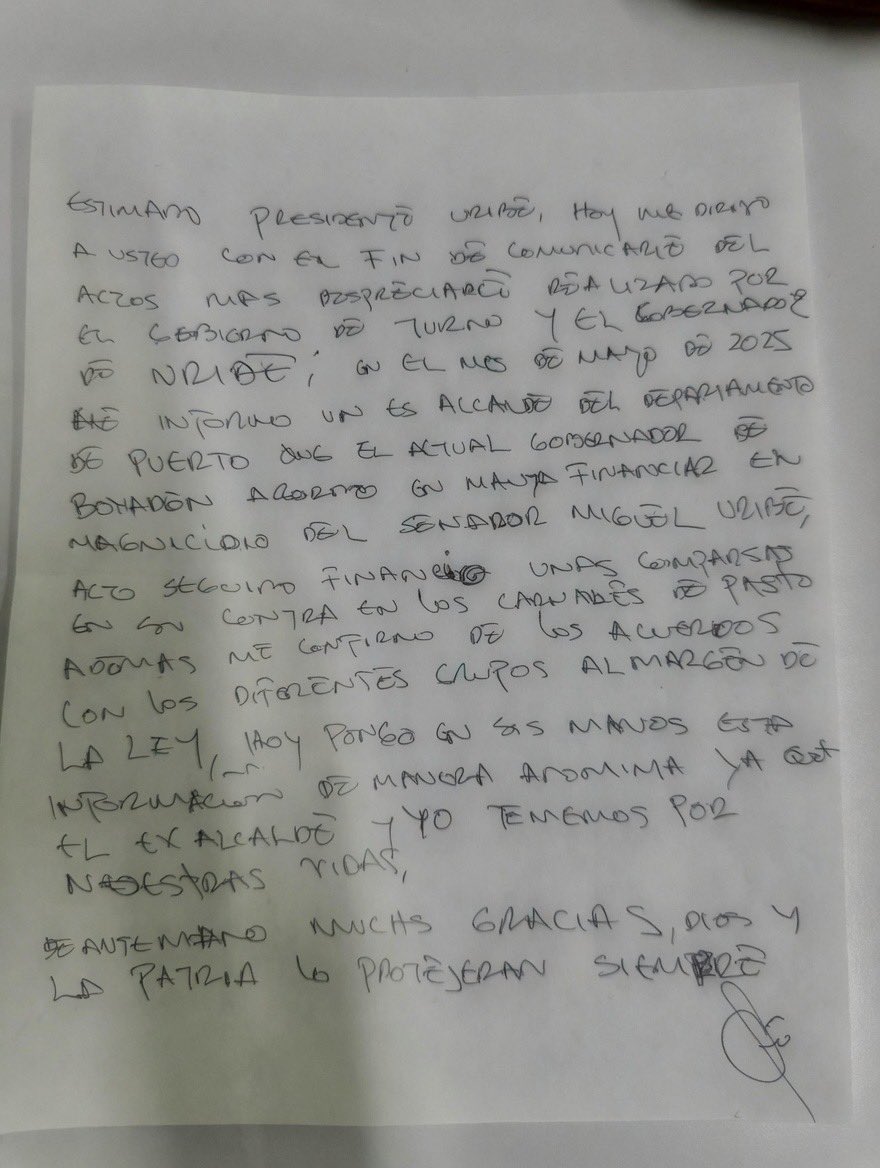 ESTIMADO PRESIDENTE URIBE, HOY ME DIRIJO
A USTED CON EL FIN DE COMUNICARLE DEL
ACTOS MAS DESPRECIABLE REALIZADO POR
EL GOBIERNO DE TURNO Y EL GOBERNADOR
DE; EN EL MES DE MAYO DE 2025
INFORMO UN ES ALCALDE DEL DEPARTAMENTO
DE PUERTO QUE EL ACTUAL GOBERNADOR DE
EN MANTA FINANCIAR EN
MAGNICIDIO DEL SENADOR MIGUEL URIBE,
ACTO SEGUIDO FINANCIO UNAS COMPARSAS
EN SU CONTRA EN LOS DE PASTO
ADEMAS ME CONFIRMO DE LOS ACUERDOS
CON LOS DIFERENTES GRUPOS AL MARGEN DE
LA LEY, HOY PONGO EN SUS MANOS ESTA
INFORMACION DE MANERA ANONIMA YA QUE
EL EX ALCALDE Y YO TEMEMOS POR
NUESTRAS VIDAS,
DE ANTEMANO MUCHS GRACIAS, DIOS Y
LA PATRIA LO PROTEJERAN SIEMPRE